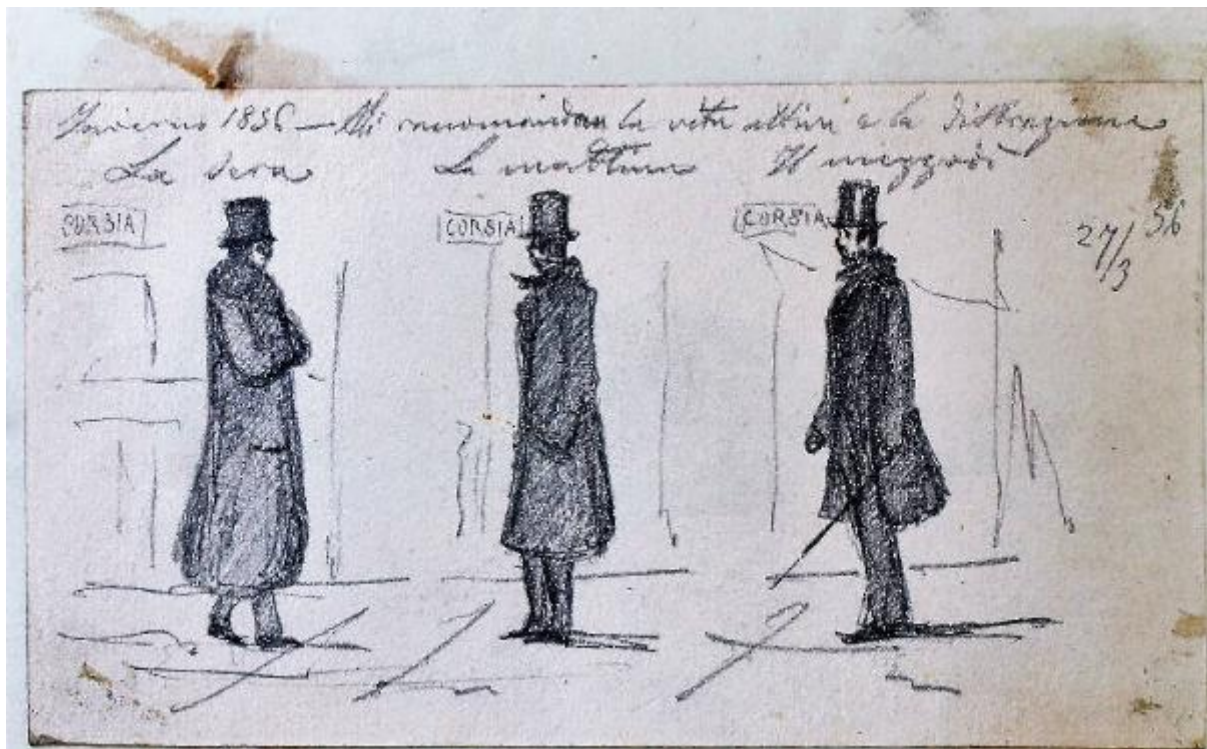 Inverno 1856 — Mi raccomandan la vita attiva e la distrazione
La sera La mattina Il mezzodì
CORSIA CORSIA CORSIA
27/3 56